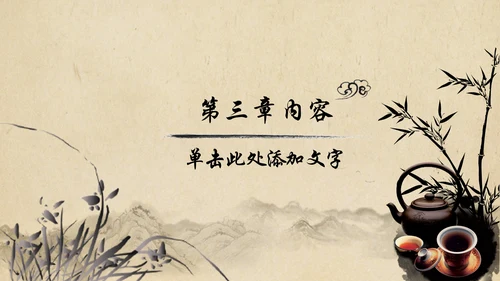 第三章内容
单击此处添加文字